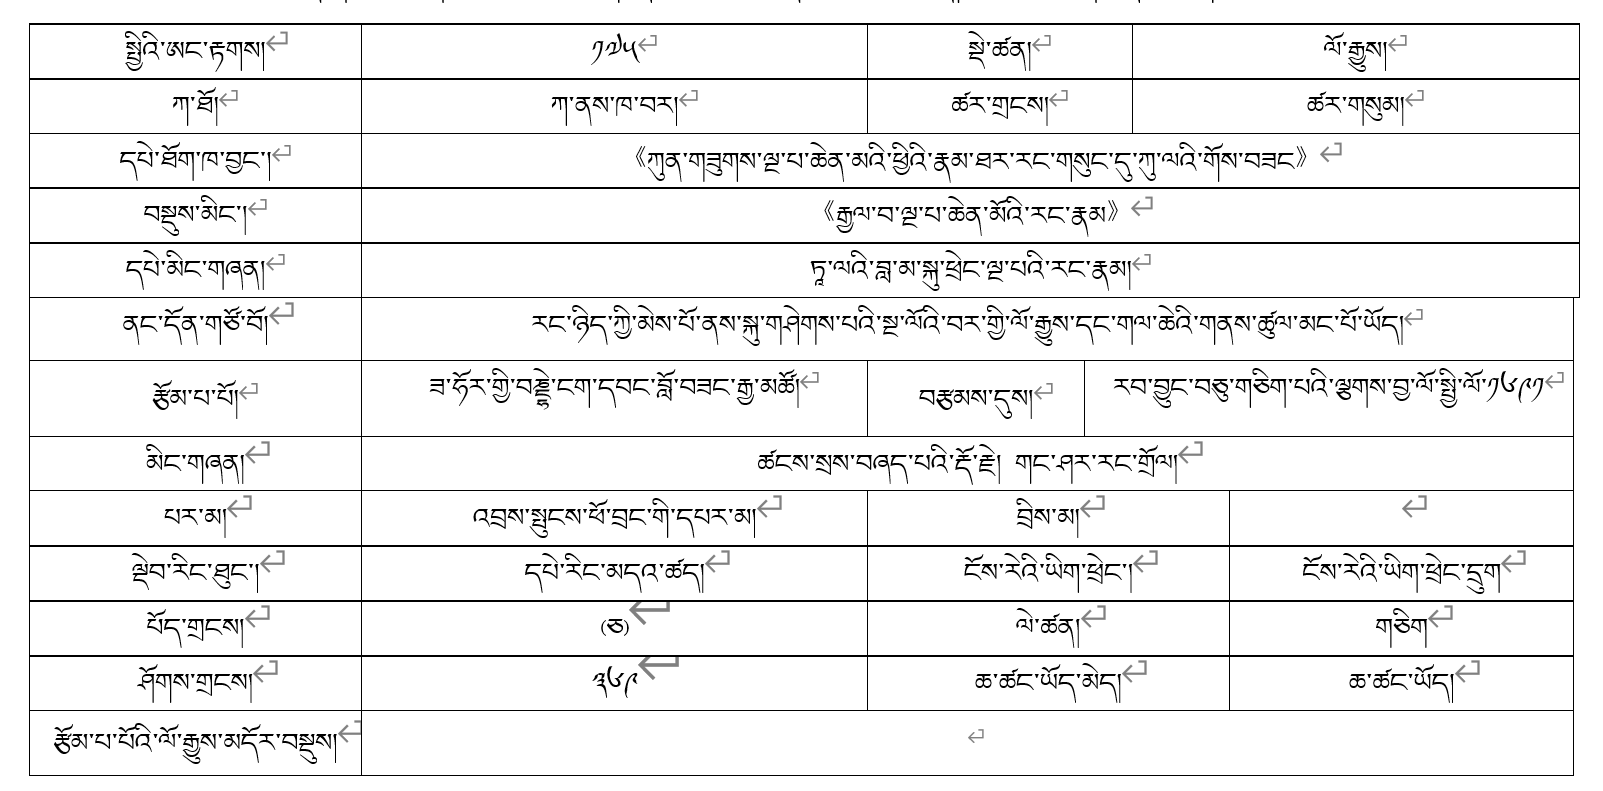 སྤྱིའི་ཨང་རྟགས། ༡༧༥ སྡེ་ཚན། ལོ་རྒྱུས།
ཀ་ཐོ། ཀ་ནས་ཁ་བར། ཚར་གྲངས། ཚར་གསུམ།
དཔེ་ཐོག་ཁ་བྱང་། 《ཀུན་གཟུགས་ལྔ་པ་ཆེན་མའི་ཕྱིའི་རྣམ་ཐར་རང་གསུང་དུ་ཀུ་ལའི་གོས་བཟང》
བསྡུས་མིང་། 《རྒྱལ་བ་ལྔ་པ་ཆེན་མོའི་རང་རྣམ》
དཔེ་མིང་གཞན། ཏཱ་ལའི་བླ་མ་སྐུ་ཕྲེང་ལྔ་པའི་རང་རྣམ།
ནང་དོན་གཙོ་བོ། རང་ཉིད་ཀྱི་མེས་པོ་ནས་སྐུ་གཤེགས་པའི་སྔ་ལོའི་བར་གྱི་ལོ་རྒྱུས་དང་གལ་ཆེའི་གནས་ཚུལ་མང་པོ་ཡོད།
རྩོམ་པ་པོ། ཟ་ཧོར་གྱི་བནྡེ་ངག་དབང་བློ་བཟང་རྒྱ་མཚོ། བརྩམས་དུས། རབ་བྱུང་བཅུ་གཅིག་པའི་ལྕགས་བྱ་ལོ་སྤྱི་ལོ་༡༦༩༡
མིང་གཞན། ཚངས་སྲས་བཞད་པའི་རྡོ་རྗེ། གང་ཤར་རང་གྲོལ།
པར་མ། འབྲས་སྤུངས་ཕོ་བྲང་གི་དཔར་མ། བྲིས་མ།
ལྡེབ་རིང་ཐུང་། དཔེ་རིང་མདའ་ཚད། ངོས་རེའི་ཡིག་ཕྲེང་། ངོས་རེའི་ཡིག་ཕྲེང་དྲུག
པོད་གྲངས། (ཅ) ལེ་ཚན། གཅིག
ཤོགས་གྲངས། ༣༦༩ ཆ་ཚང་ཡོད་མེད། ཆ་ཚང་ཡོད།
རྩོམ་པ་པོའི་ལོ་རྒྱུས་མདོར་བསྡུས།